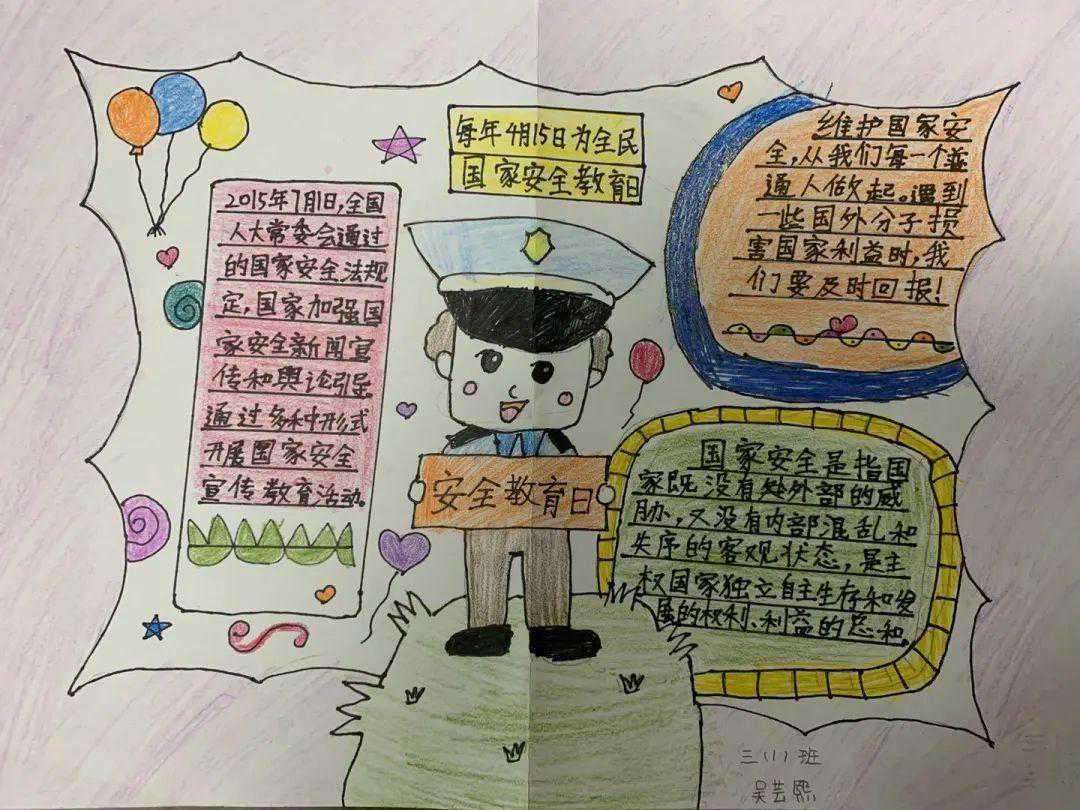 每年4月15日为全民
国家安全教育日
2015年7月1日,全国
人大常委会通过
的国家安全法规
定,国家加强国
家安全新闻宣
传和舆论引导
通过多种形式
开展国家安全
宣传教育活动。
维护国家安
全,从我们每一个普
通人做起。遇到
一些国外分子损
害国家利益时,我
们要及时回报!
安全教育日
国家安全是指国
家既没有处外部的威
胁,又没有内部混乱和
失序的客观状态,是主
权国家独立自主生存和发
展的权利、利益的总和。
三(1)班
吴芸熙